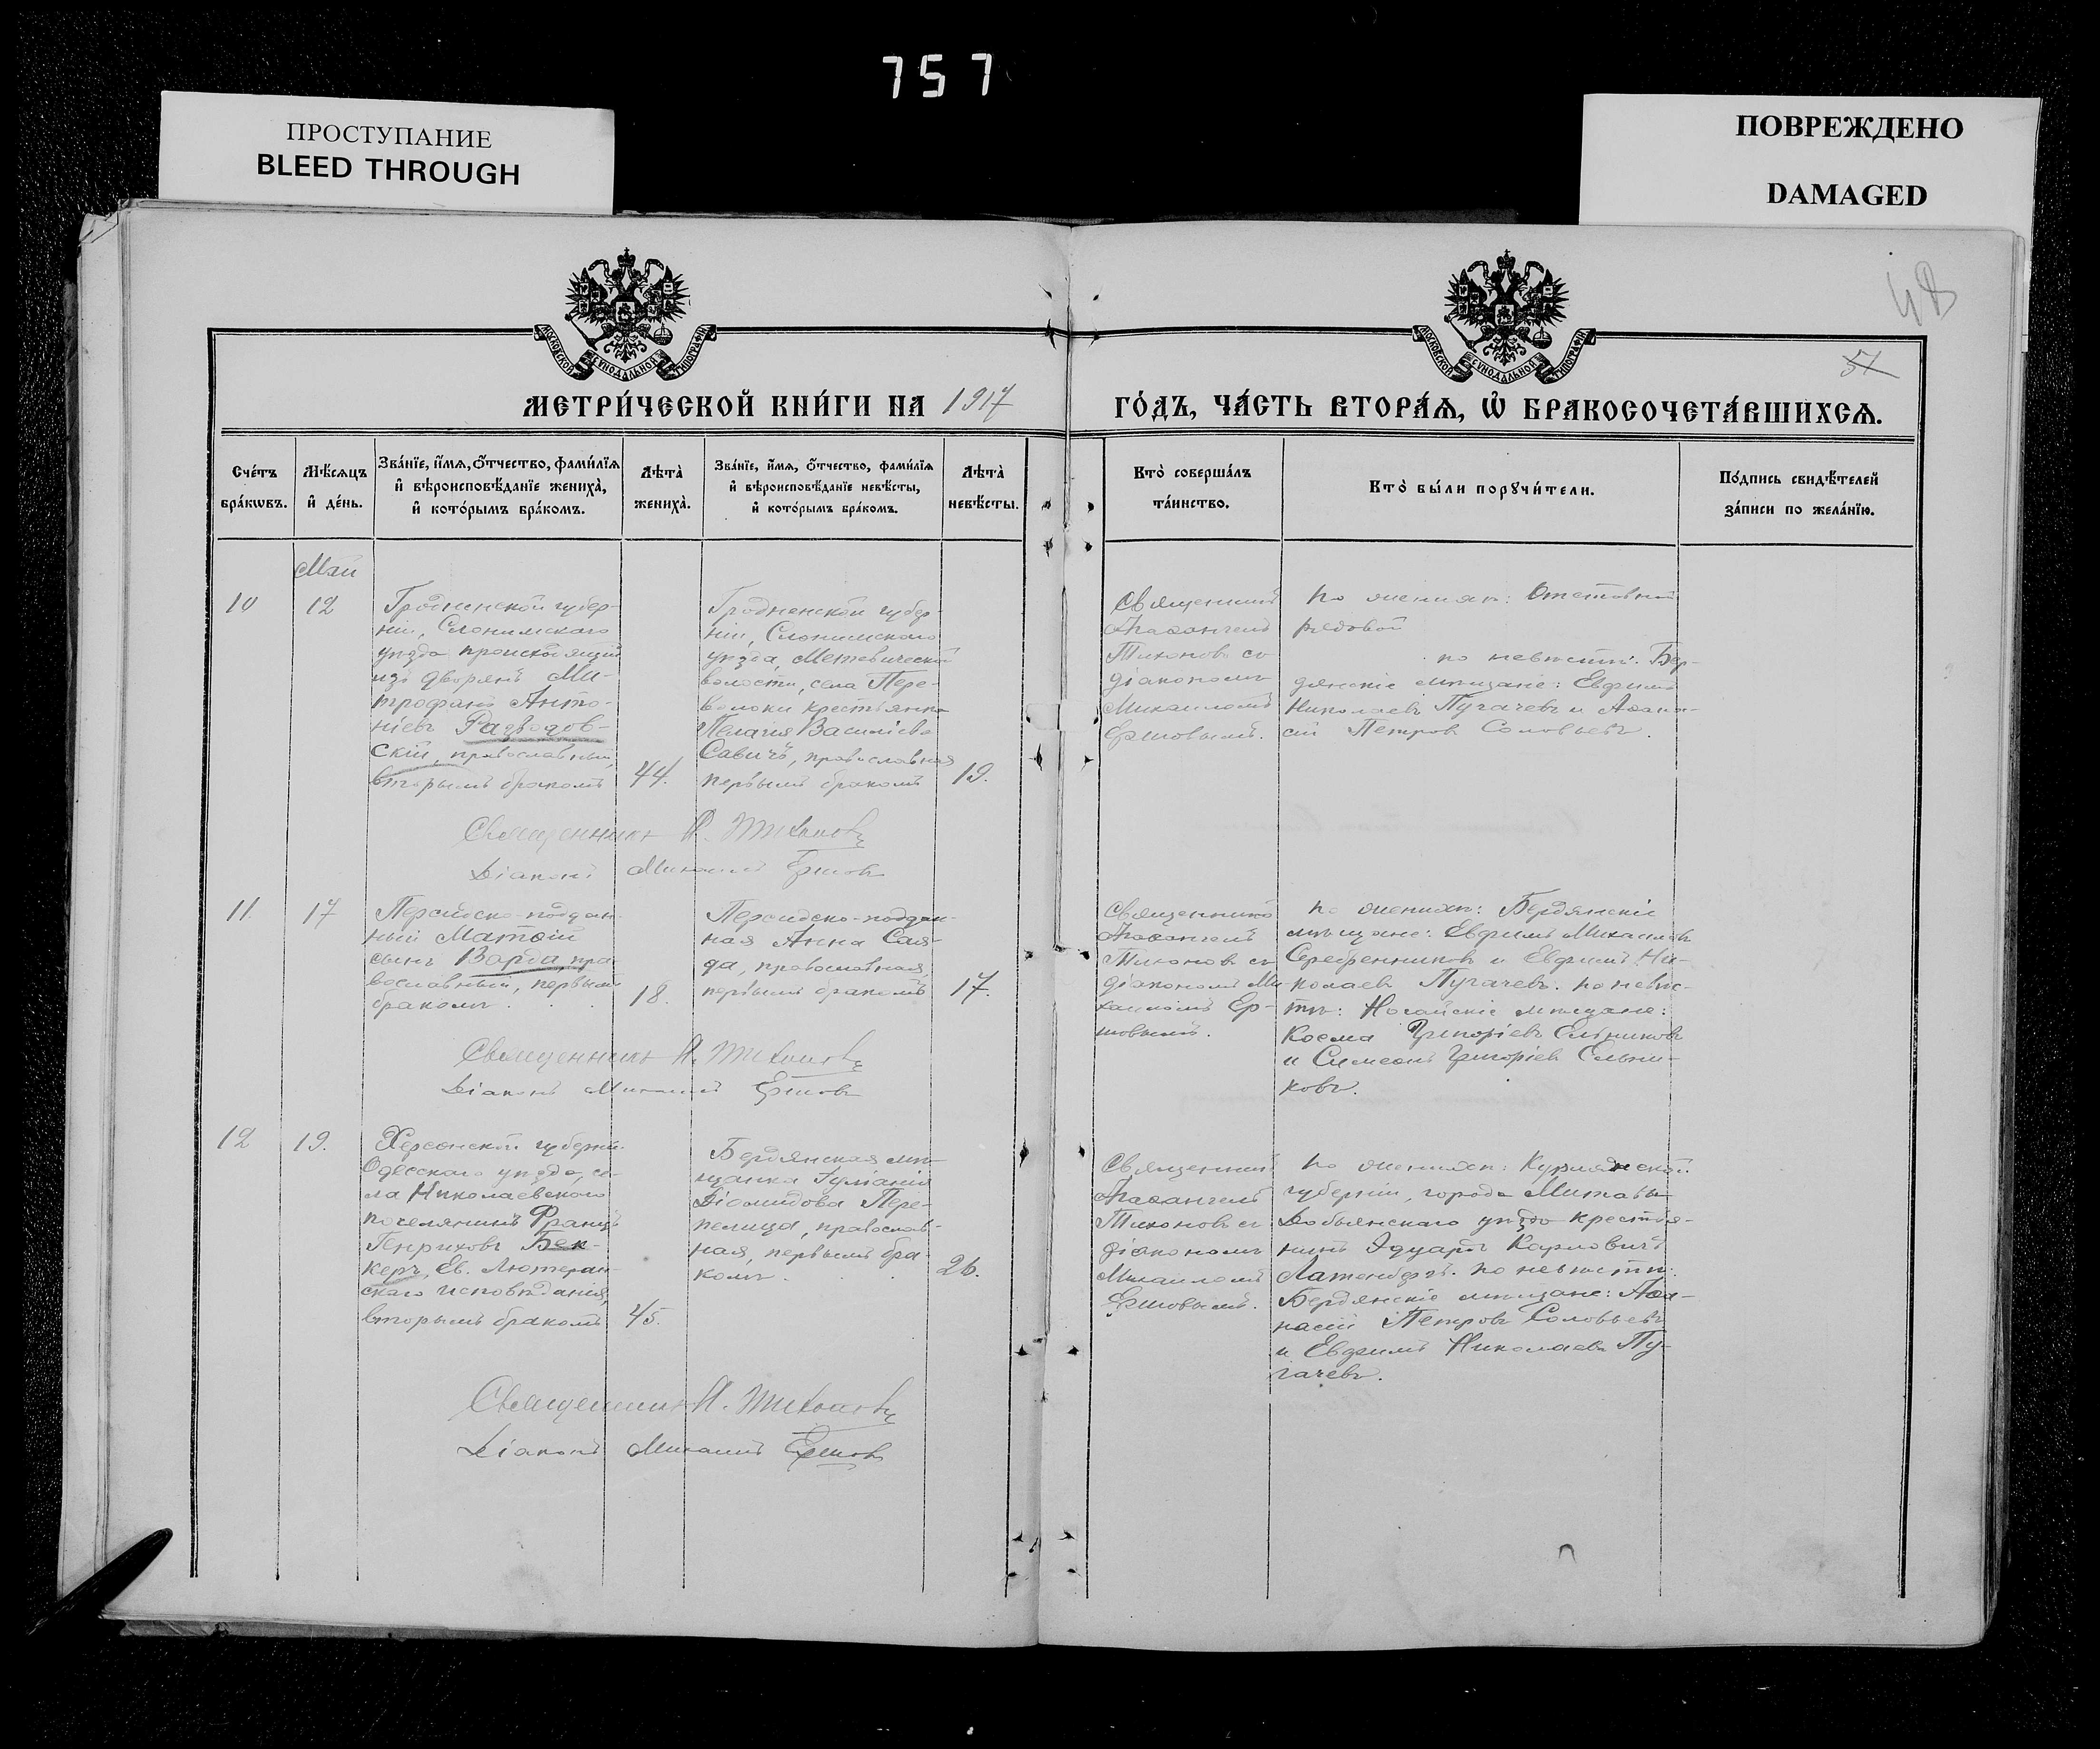 757
ПРОСТУПАНИЕ
BLEED THROUGH
ПОВРЕЖДЕНО
DAMAGED
48
57
МОСКОВСКОЙ СУНОДАЛЬНОЙ ТИПОГРАФІИ
МОСКОВСКОЙ СУНОДАЛЬНОЙ ТИПОГРАФІИ
МЕТРИ́ЧЕСКОЙ КНИ́ГИ НА 1917
ГО́ДЪ, ЧА́СТЬ ВТОРА́Ѧ, Ѽ БРАКОСОЧЕТА́ВШИХСѦ.
Сче́тъ
бра́кωвъ.
Мѣ́сѧцъ
и҆ де́нь.
Зва́нїе, и҆́мѧ, ѻ҆́тчество, фами́лїѧ
и҆ вѣроисповѣ́данїе жениха̀,
и҆ кото́рымъ бра́комъ.
Лѣта̀
жениха̀.
Зва́нїе, и҆́мѧ, ѻ҆́тчество, фами́лїѧ
и҆ вѣроисповѣ́данїе невѣ́сты,
и҆ кото́рымъ бра́комъ.
Лѣта̀
невѣ́сты.
Кто̀ соверша́лъ
та́инство.
Кто̀ бы́ли порꙋчи́тели.
По́дпись свидѣ́телей
за́писи по жела́нїю.
Маи
10
12
Гродненской губер-
ніи, Слонимскаго
уѣзда происходящій
изъ дворянъ Ми-
трофанъ Анто-
ніевъ Разводов-
скій, православный,
вторымъ бракомъ
44.
Гродненской губер-
ніи, Слонимскаго
уѣзда,
волости, села Пере-
волоки крестьянка
Пелагія Василіева
Савичъ, православная
первымъ бракомъ
19.
Священникъ
Аѳаѳангелъ
Тихоновъ съ
діакономъ
Михаиломъ
Ершовымъ.
по женихѣ: Отставной
рядовой
по невѣстѣ: Бер-
дянскіе мѣщане: Евфимъ
Николаевъ Пугачевъ и Аѳана-
сій Петровъ Соловьевъ.
Священникъ А. Тихоновъ
Діаконъ Михаилъ Ершовъ
11.
17
Персидско-поддан-
ный Матвій
сынъ Варда пра-
вославный, первымъ
бракомъ.
18.
Персидско-поддан-
ная Анна Сая-
да, православная,
первымъ бракомъ
17.
Священникъ
Аѳаѳангелъ
Тихоновъ съ
діакономъ Ми-
хаиломъ Ер-
шовымъ.
по женихѣ: Бердянскіе
мѣщане: Евфимъ Михаиловъ
Серебренниковъ и Евфимъ Ни-
колаевъ Пугачевъ. по невѣс-
тѣ: Ногайскіе мѣщане:
Косма Григоріевъ Сельниковъ
и Симеонъ Григоріевъ Сельни-
ковъ.
Священникъ А. Тихоновъ
Діаконъ Михаилъ Ершовъ
12
19.
Херсонской губерніи
Одесскаго уѣзда, се-
ла Николаевскаго
поселянинъ Францъ
Генриховъ Бек-
керъ, Ев. Лютеран-
скаго исповѣданія,
вторымъ бракомъ
45.
Бердянская мѣ-
щанка Іуліанія
Діомидова Пере-
пелица, православ-
ная, первымъ бра-
комъ.
26.
Священникъ
Аѳаѳангелъ
Тихоновъ съ
діакономъ
Михаиломъ
Ершовымъ.
по женихѣ: Курляндской
губерніи, города Митавы
уѣзда крестья-
нинъ Эдуардъ Карловичъ
по невѣстѣ:
Бердянскіе мѣщане: Аѳа-
насій Петровъ Соловьевъ
и Евфимъ Николаевъ Пу-
гачевъ.
Священникъ А. Тихоновъ
Діаконъ Михаилъ Ершовъ